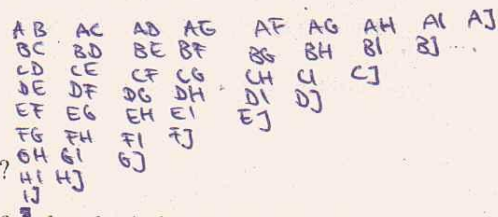 AB AC AD AE AF AG AH AI AJ
BC BD BE BF BG BH BI BJ ...
CD CE CF CG CH CI CJ
DE DF DG DH DI DJ
EF EG EH EI EJ
FG FH FI FJ
GH GI GJ
? HI HJ
IJ